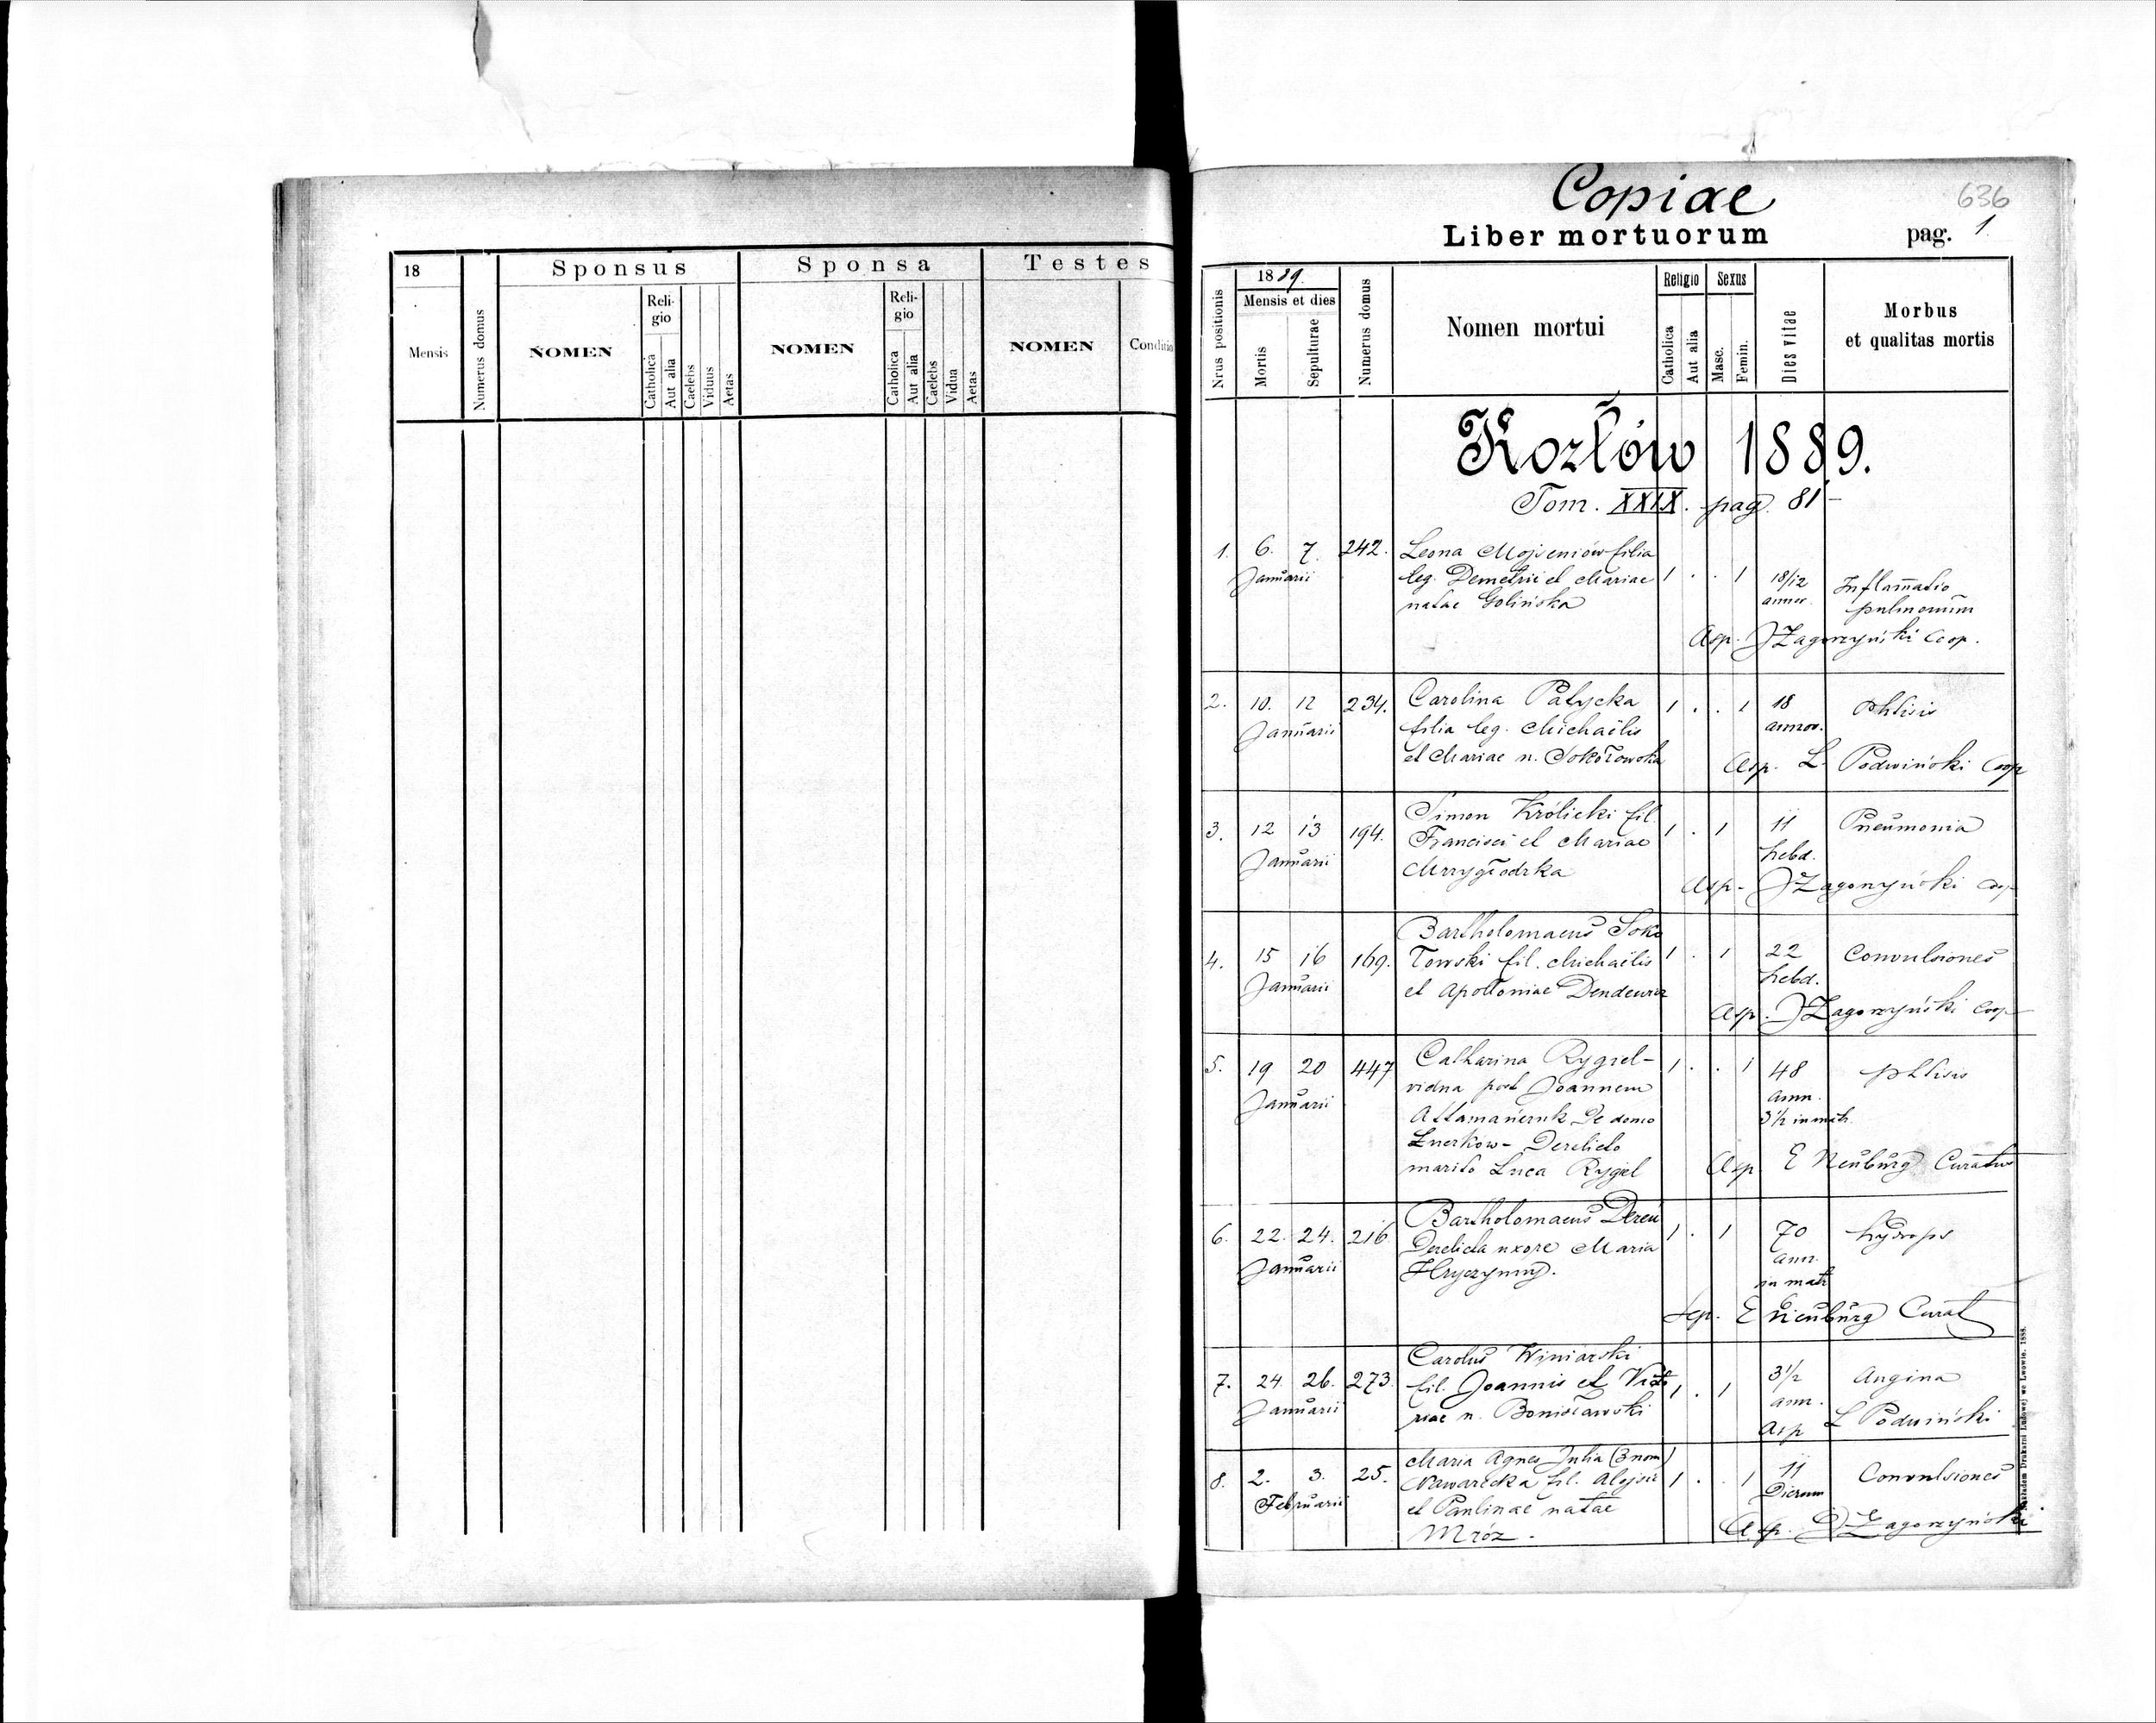 18
Mensis
Numerus domus
Sponsus
NOMEN
Reli-
gio
Catholica
Aut alia
Caelebs
Viduus
Aetas
Sponsa
NOMEN
Reli-
gio
Catholica
Aut alia
Caelebs
Vidua
Aetas
Testes
NOMEN
Conditio
Copiae
636
Liber mortuorum pag. 1
Nrus positionis
1889.
Mensis et dies
Mortis
Sepulturae
Numerus domus
Nomen mortui
Religio
Catholica
Aut alia
Sexus
Masc.
Femin.
Dies vitae
Morbus
et qualitas mortis
Kozłów 1889.
Tom. XXIX. pag. 81-
1. 6. 7. 242. Leona Mojseniów filia
Januarii leg. Demetrii et Mariae 1 . . 1 18/12 Inflam̄atio
natae Golińska annor. pulmonum
Asp. J Zagorzyński Coop.
2. 10. 12 234. Carolina Patycka 1 . . 1 18 Phtisis
Januarii filia leg. Michaëlis annor.
et Mariae n. Sokołowska
Asp. L Podwiński Coop
3. 12 13 194. Simon Królicki fil.
Januarii Francisci et Mariae 1 . 1 11 Pneumonia
Mrzygłodzka hebd.
Asp. J Zagorzyński Coop
4. 15 16 169. Bartholomaeus Soko
Januarii łowski fil. Michaëlis 1 . 1 22 Convulsiones
et Apolloniae Dendewicz hebd.
Asp. J Zagorzyński Coop
5. 19 20 447 Catharina Rygiel- 1 . . 1 48 phtisis
Januarii vidua post Joannem ann.
De domo 3½ in matr.
Derelicto
marito Luca Rygiel
Asp E Neuburg Curatus
6. 22. 24. 216 Bartholomaeus Dereń 1 . 1 70 hydrops
Januarii Derelicta uxore Maria ann.
Hryczyny. in matr
Sep. E Neuburg Curat
7. 24. 26. 273. Carolus Winiarski
Januarii fil. Joannis et Victo 1 . 1 3½ Angina
riae n. Bonisławski ann.
Asp L Podwiński
8. 2. 3. 25. Maria Agnes Julia (3 nom)
Februarii Nawarecka fil. Alojsii 1 . . 1 11 Convulsiones
et Paulinae natae Dierum
Mróz.
Asp. J Zagorzyński
Nakładem Drukarni Ludowej we Lwowie. 1888.